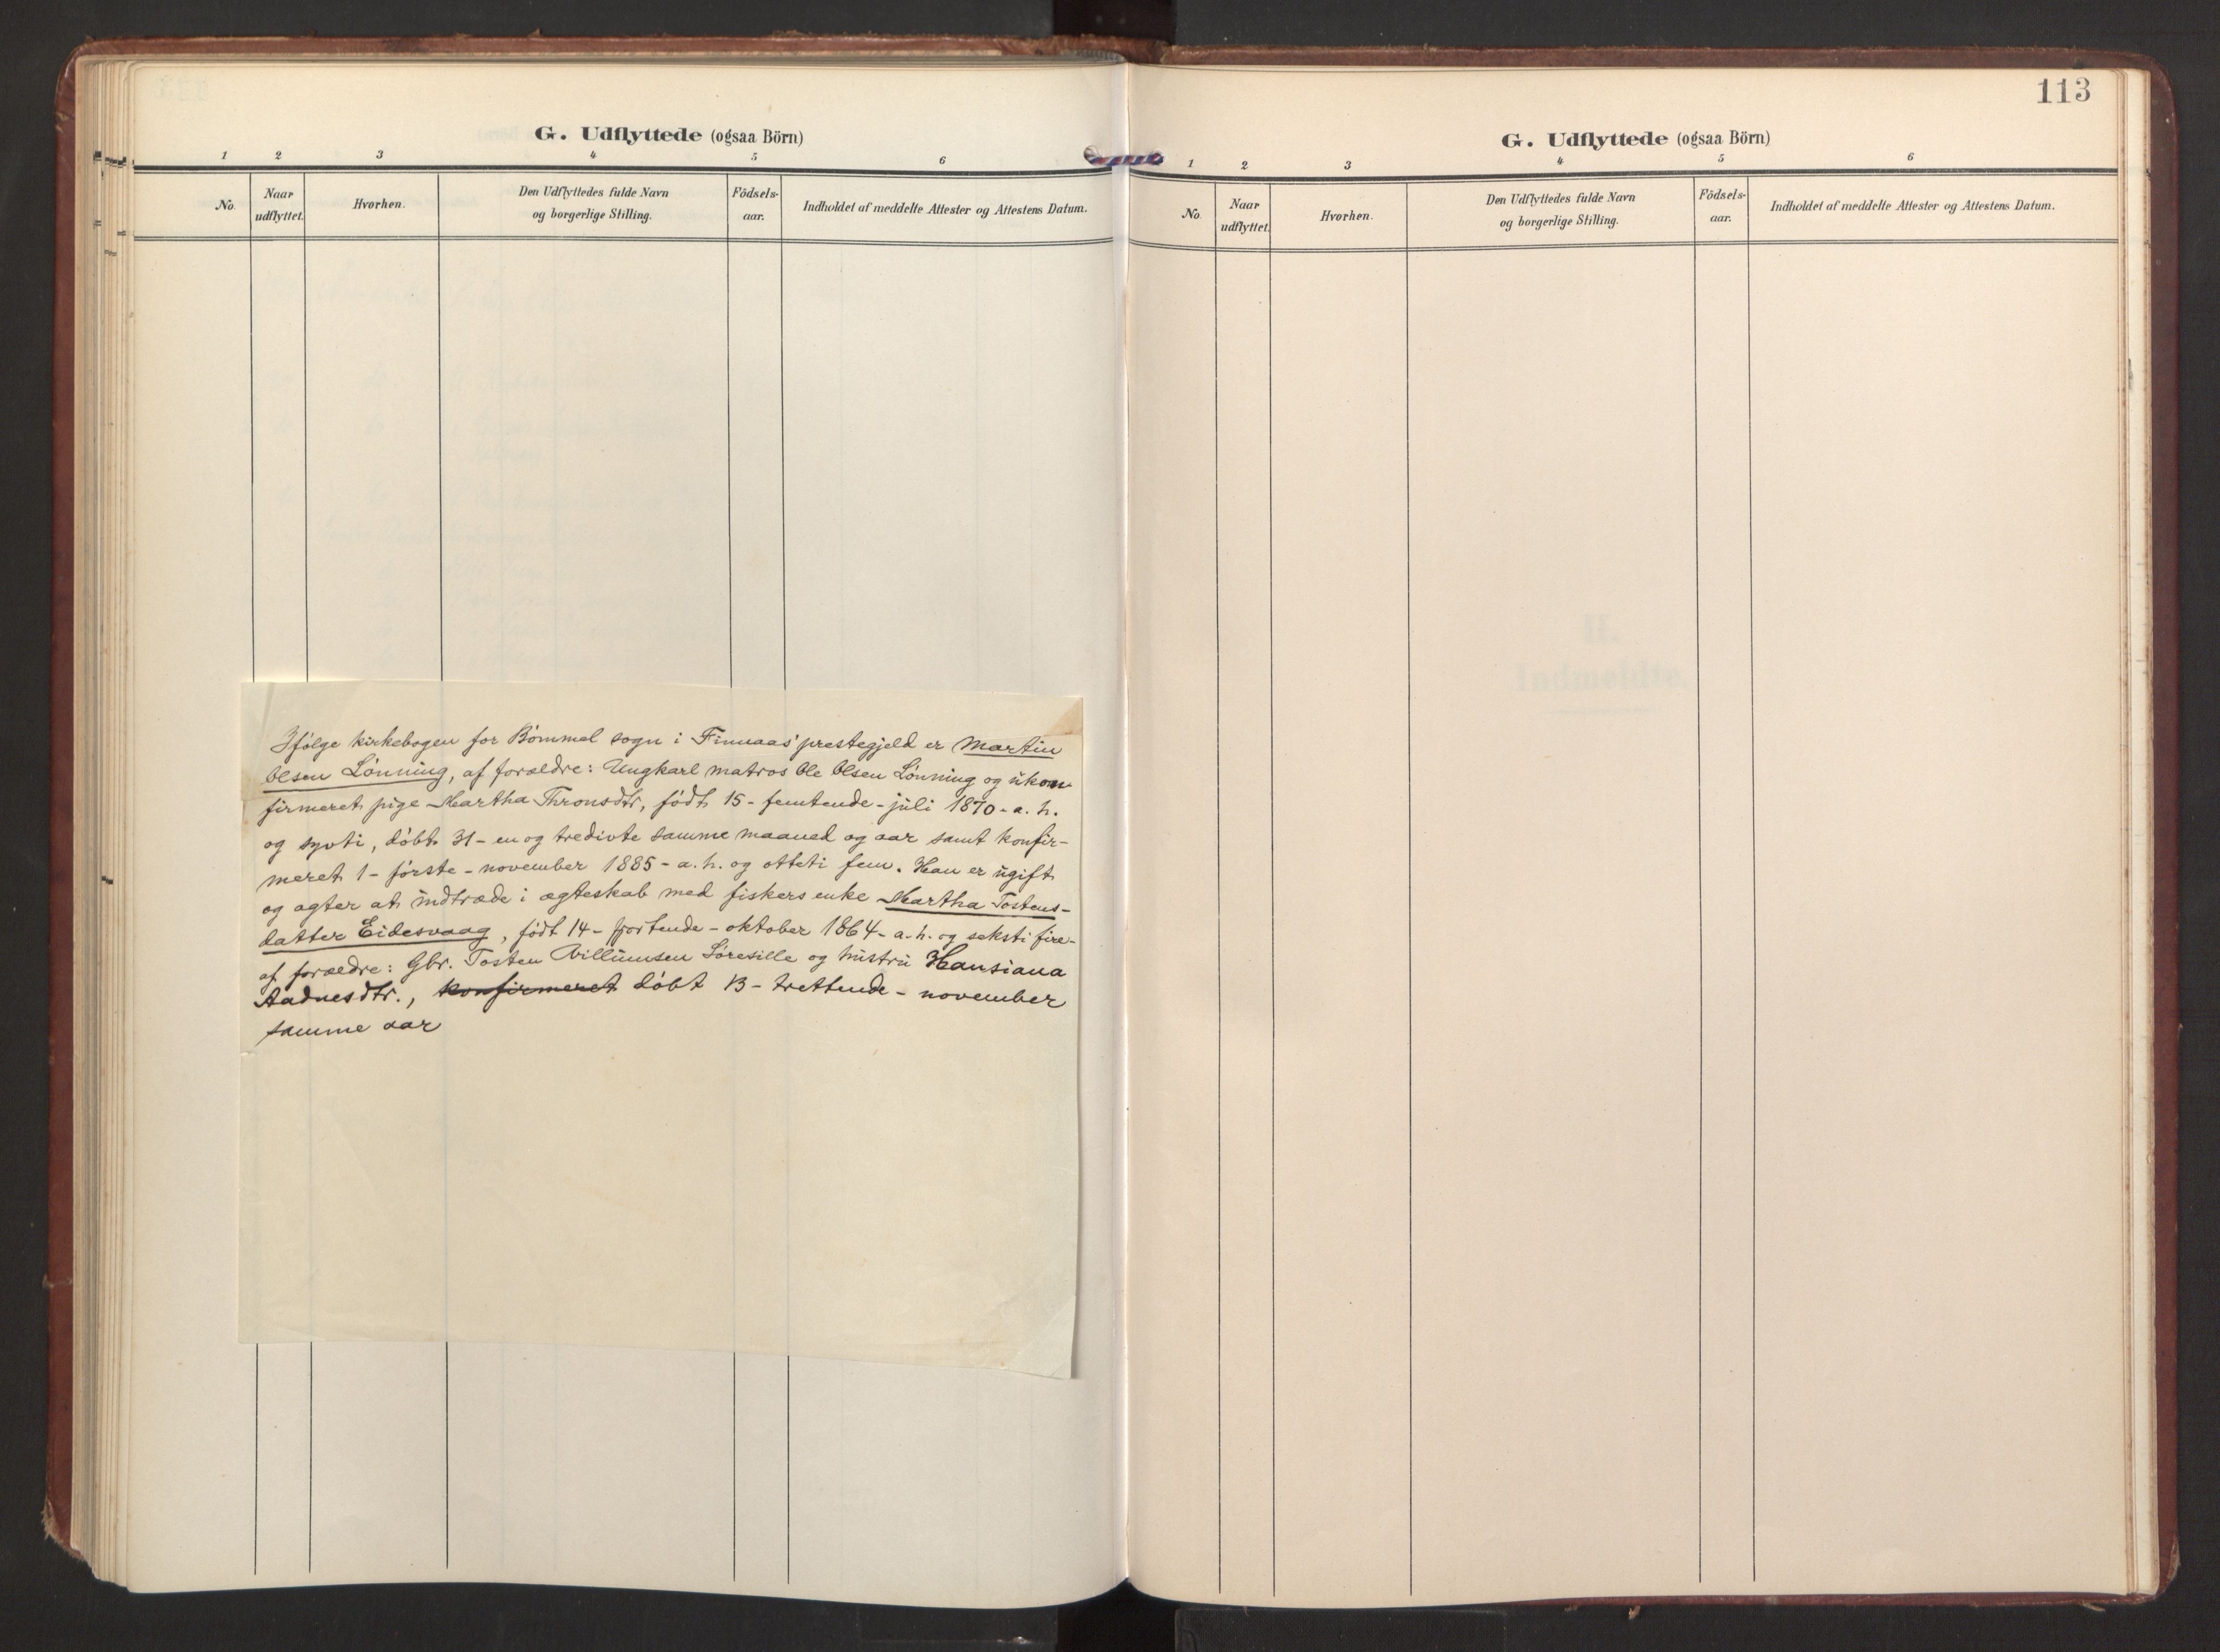 G. Udflyttede (ogsaa Börn)
1 2 3 4 5 6
No. Naar udflyttet. Hvorhen. Den Udflyttedes fulde Navn og borgerlige Stilling. Födsels-aar. Indholdet af meddelte Attester og Attestens Datum.
Ifølge kirkebogen for Bømmel sogn i Finnaas' prestegjeld er Martin
Olsen Lønning, af forældre: Ungkarl matros Ole Olsen Lønning og ukon-
firmeret pige Martha Thronsdtr, født 15 - femtende - juli 1870 - a. h.
og sytti, døbt 31 - en og tredivte samme maaned og aar samt konfir-
meret 1 - første - november 1885 - a. h. og otteti fem. Han er ugift
og agter at indtræde i ægteskab med fiskers enke Martha Tostens-
datter Eidesvaag, født 14 - fjortende - oktober 1864 - a. h. og seksti fire -
af forældre: Gbr. Tosten Villumsen Løresille og hustru Hansiana
Aadnesdtr., konfirmeret døbt 13 - trettende - november
samme aar
113
G. Udflyttede (ogsaa Börn)
1 2 3 4 5 6
No. Naar udflyttet. Hvorhen. Den Udflyttedes fulde Navn og borgerlige Stilling. Födsels-aar. Indholdet af meddelte Attester og Attestens Datum.
II.
Indmeldte.